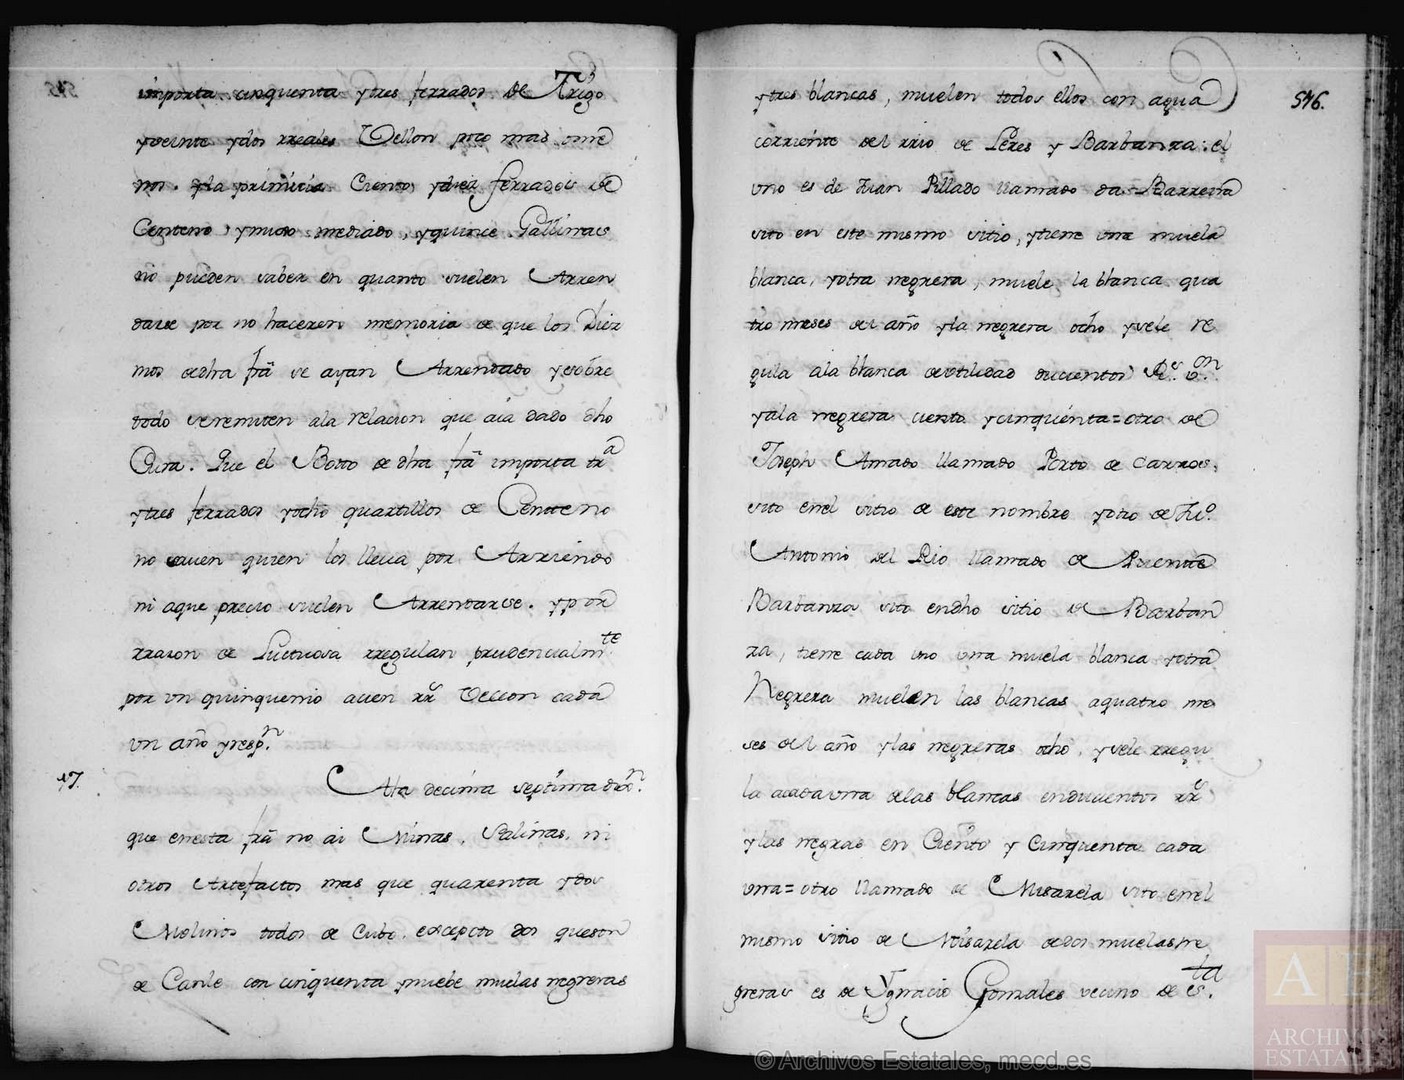 importa cinquenta ytres ferrados de Trigo
yveinte ydos rreales Vellon poco mas ome
nos. yla primicia Ciento ydiez ferrados de
Centeno, ymixo mediado, yquince Gallinas
no pueden saber en quanto suelen Arren
darse por no hacerem memoria de que los Diez
mos dedha frã se ayan Arrendado ysobre
todo seremiten ala relacion que aia dado dho
Cura. Que el Boto de dha frã importa tra
ytres ferrados yocho quartillos de Centeno
no saven quien los lleva por Arriendo
ni aque precio suelen Arrendarse. ypor
rrazon de Luctuosa rregulan prudencialmte
por un quinquenio acien rr Vellon cada
un año yrespn.
17. Ala decima septima dixn.
que enesta frã no ai Minas, Salinas, ni
otros Artefactos mas que quarenta ydos
Molinos todos de Cubo excepto dos queson
de Canle con cinquenta ynuebe muelas negreras
546.
ytres blancas, muelen todos ellos con agua
corriente del rrio de Lerez y Barbanza: el
uno es de Juan Pillado llamado da Barreira
sito en este mismo sitio, ytiene una muela
blanca, yotra negrera, muele la blanca qua
tro meses del año yla negrera ocho ysele re
gula ala blanca deutilidad ducientos Rs. Vn.
yala negrera ciento ycinquenta=otro de
Joseph Amado llamado Porto de Carros,
sito enel sitio de este nombre yotro de
Antonio del Rio llamado de Puente
Barbanza sito endho sitio de Barban
za, tiene cada uno una muela blanca yotra
Negrera muelen las blancas aquatro me
ses del año ylas negreras ocho, ysele rregu
la acadauna delas blancas enducientos rr
ylas negras en Ciento y Cinquenta cada
una=otro llamado de Misarela sito enel
mismo sitio de Misarela dedos muelas ne
greras es de Ygnacio Gonzales vecino de esta.
© Archivos Estatales, mecd.es
AE
ARCHIVOS
ESTATALES